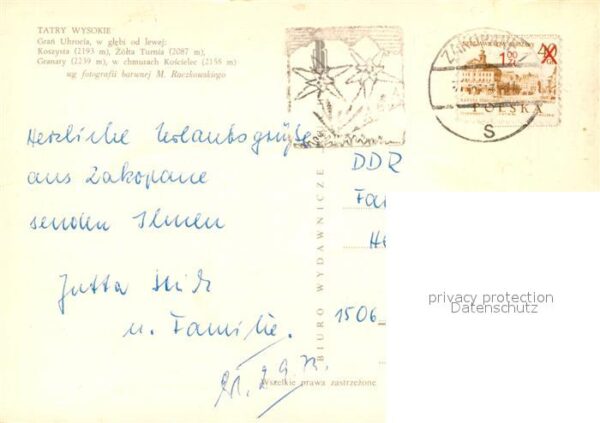 TATRY WYSOKIE
Grań Uhrocia, w głębi od lewej:
Koszysta (2193 m), Żółta Turnia (2087 m),
Granaty (2239 m), w chmurach Kościelec (2155 m)
wg fotografii barwnej M. Raczkowskiego
ZAKOPANE
1,50
zł
POLSKA
S
Herzliche Urlaubsgrüße
aus Zakopane
senden Ihnen
Jutta
u. Familie.
DDR
Fa
He
1506
BIURO WYDAWNICZE
Wszelkie prawa zastrzeżone
privacy protection
Datenschutz